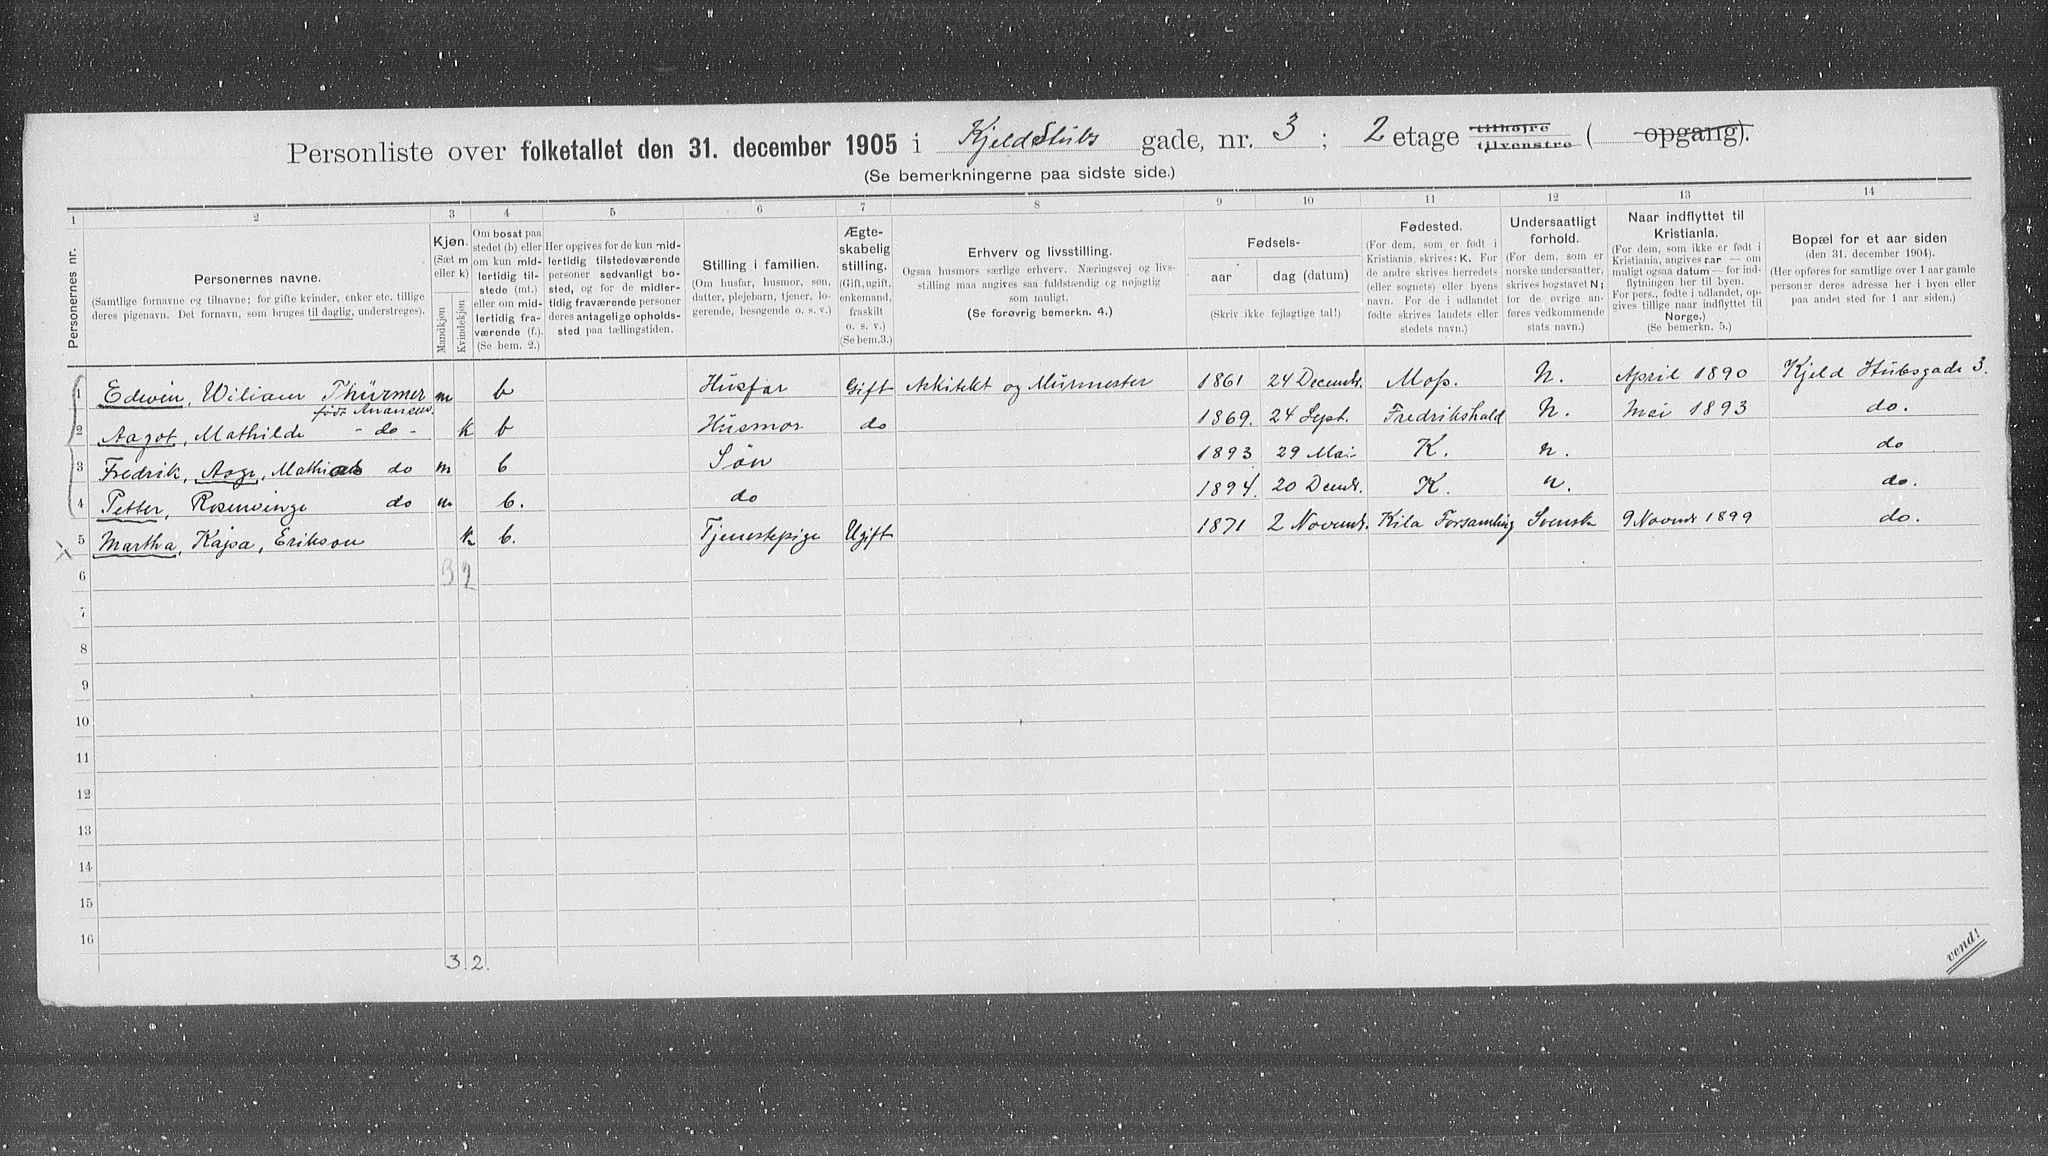 Personliste over folketallet den 31. december 1905 i Kjeld Stubs gade, nr. 3 ; 2 etage tilhøjre tilvenstre ( opgang).
(Se bemerkningerne paa sidste side.)
1 2 3 4 5 6 7 8 9 10 11 12 13 14
Personernes nr.
Personernes navne.
(Samtlige fornavne og tilnavne; for gifte kvinder, enker etc. tillige deres pigenavn. Det fornavn, som bruges til daglig, understreges).
Kjøn. (Sæt m eller k)
Mandkjøn
Kvindekjøn
Om bosat paa stedet (b) eller om kun midlertidig tilstede (mt.) eller om midlertidig fraværende (f.). (Se bem. 2.)
Her opgives for de kun midlertidig tilstedeværende personer sedvanligt bosted, og for de midlertidig fraværende personer deres antagelige opholdssted paa tællingstiden.
Stilling i familien.
(Om husfar, husmor, søn, datter, plejebarn, tjener, logerende, besøgende o. s. v.)
Ægteskabelig stilling.
(Gift, ugift, enkemand, fraskilt o. s. v.) (Se bem. 3.)
Erhverv og livsstilling.
Ogsaa husmors særlige erhverv. Næringsvej og livsstilling maa angives saa fuldstændig og nøjagtig som muligt.
(Se forøvrig bemerkn. 4.)
Fødsels-
aar
dag (datum)
(Skriv ikke fejlagtige tal!)
Fødested.
(For dem, som er født i Kristiania, skrives: K. For de andre skrives herredets (eller sognets) eller byens navn. For de i udlandet fødte skrives landets eller stedets navn.)
Undersaatligt forhold.
(For dem, som er norske undersaatter, skrives bogstavet N; for de øvrige anføres vedkommende stats navn.)
Naar indflyttet til Kristiania.
(For dem, som ikke er født i Kristiania, angives aar — om muligt ogsaa datum — for indflytningen her til byen. For pers., fødte i udlandet, opgives tillige naar indflyttet til Norge.)
(Se bemerkn. 5.)
Bopæl for et aar siden
(den 31. december 1904).
(Her opføres for samtlige over 1 aar gamle personer deres adresse her i byen eller paa andet sted for 1 aar siden.)
1 Edwin, Wiliam Thürmer m b Husfar Gift Arkitekt og Murmester 1861 24 Decembr. Moss. N. April 1890 Kjeld Stubsgade 3.
født
2 Aagot, Mathilde - do - k b Husmor do 1869. 24 Sept. Fredrikshald N. Mai 1893 do.
3 Fredrik, Aage, Mathias do m b Søn 1893 29 Mai K. n. do
4 Petter, Rosenvinge do m b. do 1894. 20 Decmbr. K. n. do.
5 Martha, Kajsa, Erikson k b. Tjenestepige Ugift 1871 2 Novembr. Kila Forsamling Svensk 9 Novembr 1899 do.
6 3 2
7
8
9
10
11
12
13
14
15
16
3. 2.
vend!